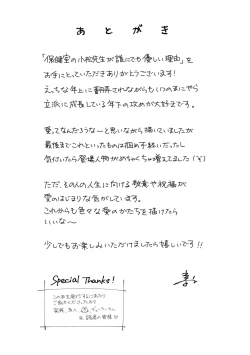 あとがき
「保健室の小松先生が誰にでも優しい理由」を
お手にとっていただきありがとうございます！
えっちな年上に翻弄されながらもいつのまにやら
立派に成長している年下の攻めが大好きです。
愛ってなんだろうな〜と思いながら描いていましたが
最後までこれといったものは掴め
気付いたら登場人物がめちゃくちゃ増えてました
ただ、その人の人生に向ける敬意や祝福が
愛のはじまりな気がしています。
これからも色々な愛のかたちを描けたら
いいな〜
少しでもお楽しみいただけましたら嬉しいです!!
Special Thanks!
この本を発行するにあたり
ご協力くださった方々
家族、友人、
&読者の皆様